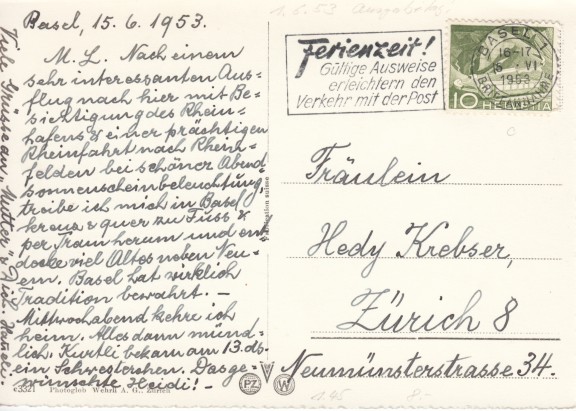 Basel, 15.6.1953.
M. L. Nach einem
sehr interessanten Aus-
flug nach hier mit Be-
sichtigung des Rhein-
hafens & einer prächtigen
Rheinfahrt nach Rhein-
felden bei schöner Abend
sonnenscheinbeleuchtung,
treibe ich mich in Basel
kreuz & quer zu Fuss &
per Tram herum und ent
decke viel Altes neben Neu-
em. Basel hat wirklich
Tradition bewahrt. —
Mittwochabend kehre ich
heim. Alles dann münd-
lich. Kurtli bekam am 13. ds.
ein Schwesterchen. Das ge-
wünschte Heidi!
Viele Grüsse an Mutter &
c5321 Photogleb Wehrli A. G., Zürich
1.6.53
Ferienzeit!
Gültige Ausweise
erleichtern den
Verkehr mit der Post
BASEL 1
16-17
15. VI
1953
BRIEFANNAHME
10 HELVETIA
Fräulein
Hedy Krebser,
Zürich 8
Neumünsterstrasse 34.
PZ
W
1.45
8.-